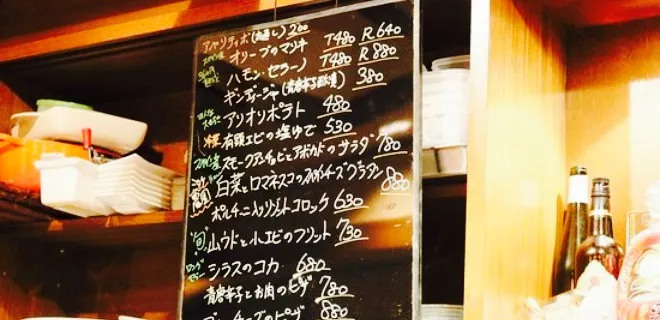 アペリティボ(お通し) 200
オリーブのマリネ T480 R640
ハモン・セラーノ T480 R880
ギンディージャ(青唐辛子酢漬) 380
アリオリポテト 480
有頭エビの塩ゆで 530
スモークアンチョビとアボカドのサラダ 780
白菜とロマネスコのブルーチーズグラタン 880
ポルチーニ入りリゾットコロッケ 630
"旬" 山ウドと小エビのフリット 730
ロングセラー シラスのコカ 680
青唐辛子とお肉のピザ 780
チーズのピザ 880